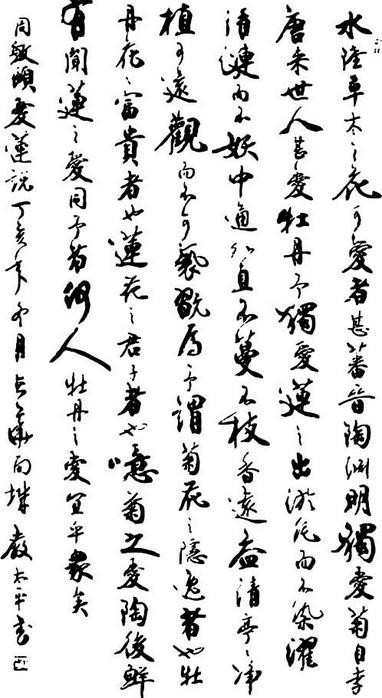 水陸草木之花可愛者甚蕃晉陶淵明獨愛菊自李
唐来世人甚愛牡丹予獨愛蓮之出淤泥而不染濯
清漣而不妖中通外直不蔓不枝香遠益清亭亭净
植可遠觀而不可褻翫焉予謂菊花之隱逸者也牡
丹花之富貴者也蓮花之君子者也噫菊之愛陶後鮮
有聞蓮之愛同予者何人牡丹之愛宜乎衆矣
周敦頤愛蓮説丁亥年冬月太平書